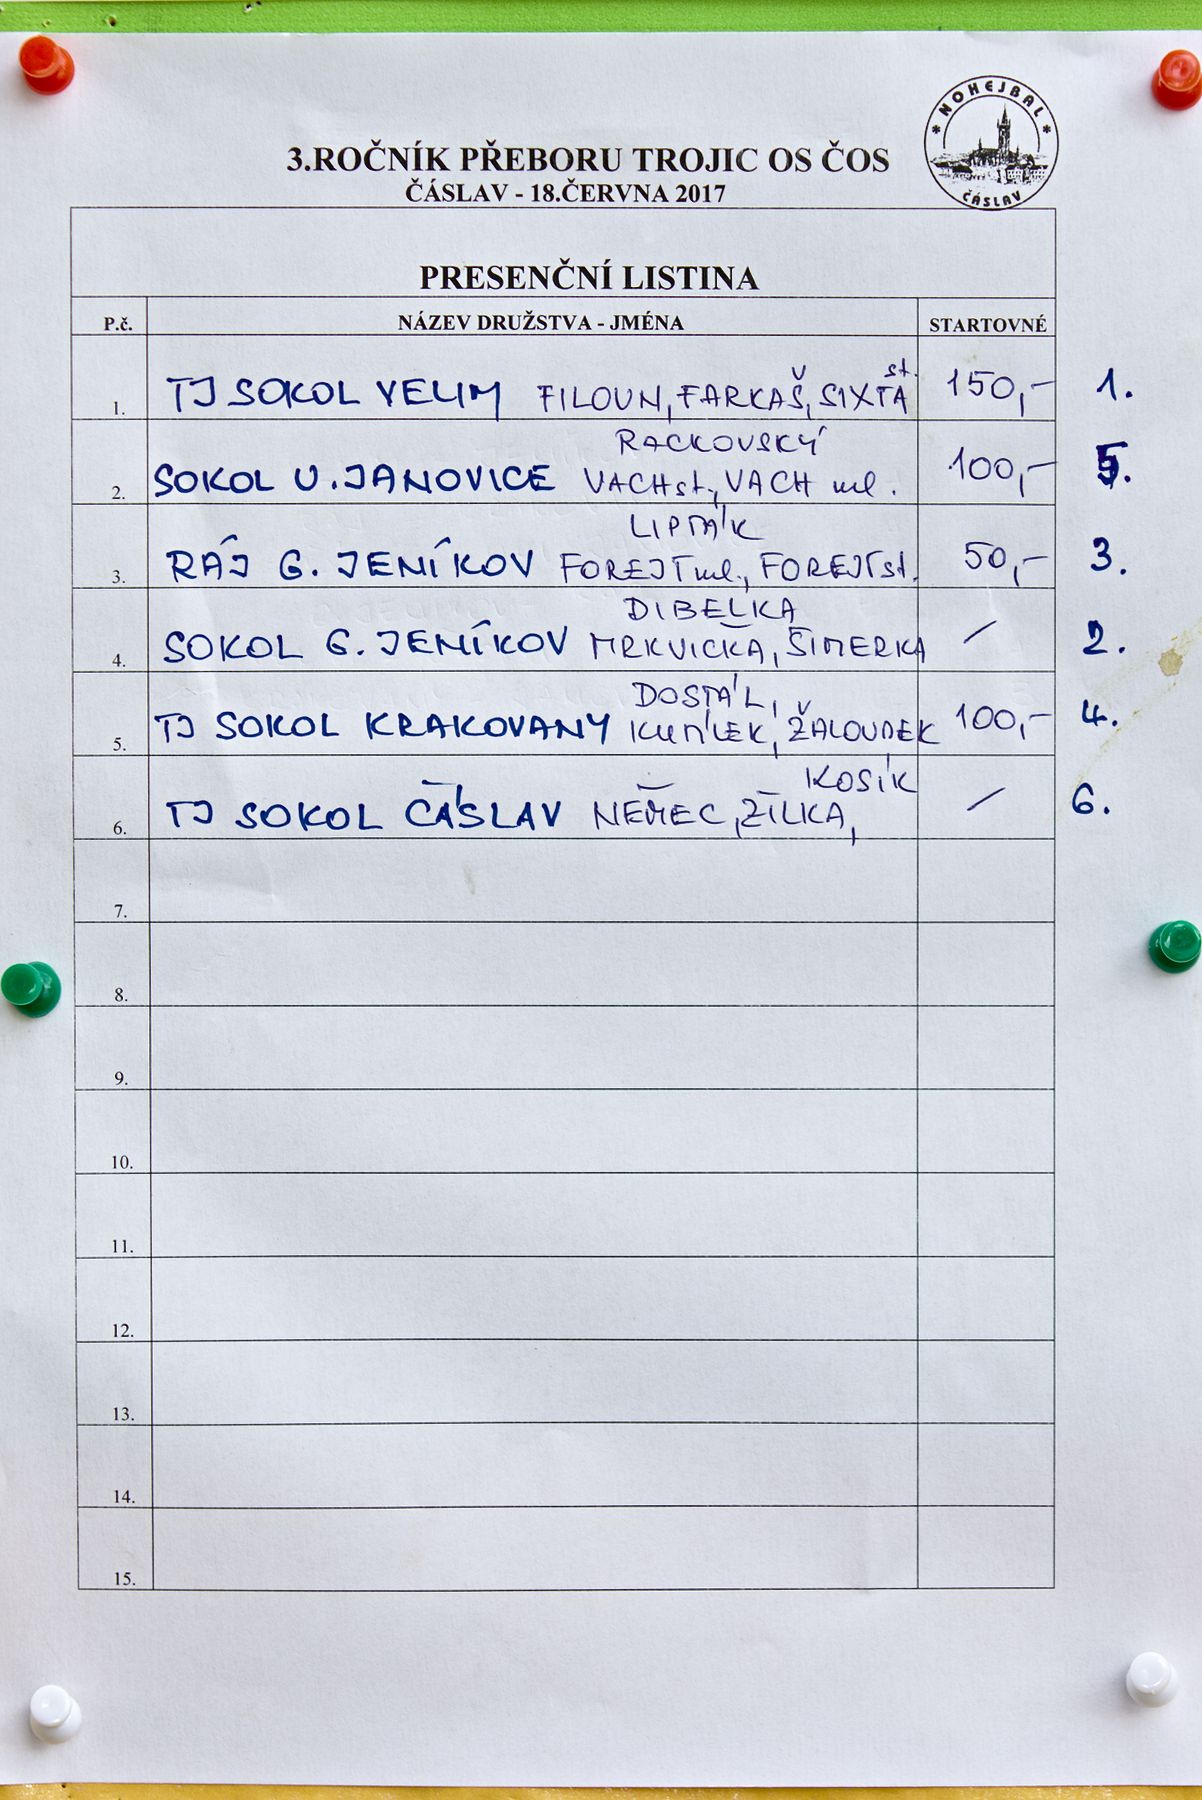 NOHEJBAL
ČÁSLAV
3.ROČNÍK PŘEBORU TROJIC OS ČOS
ČÁSLAV - 18.ČERVNA 2017
PRESENČNÍ LISTINA
P.č. NÁZEV DRUŽSTVA - JMÉNA STARTOVNÉ
st.
1. TJ SOKOL VELIM FILOUN, FARKAŠ, SIXTA 150,- 1.
RACKOVSKÝ
2. SOKOL U. JANOVICE VACH st., VACH ml. 100,- 5.
LIPTÁK
3. RÁJ G. JENÍKOV FOREJT ml., FOREJT st. 50,- 3.
DIBELKA
4. SOKOL G. JENÍKOV MRKVIČKA, ŠIMERKA / 2.
DOSTÁL,
5. TJ SOKOL KRAKOVANY ŽALOUDEK 100,- 4.
KOSÍK
6. TJ SOKOL ČÁSLAV NĚMEC, ZÍLKA, / 6.
7.
8.
9.
10.
11.
12.
13.
14.
15.